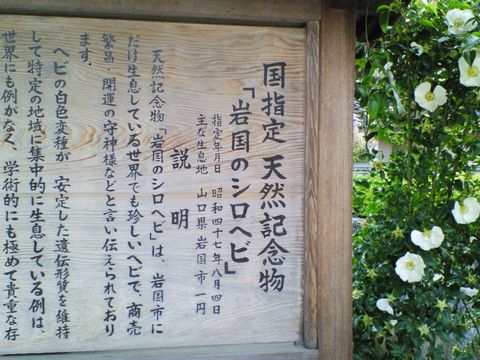 国指定 天然記念物
「岩国のシロヘビ」
指定年月日 昭和四十七年八月四日
主な生息地 山口県岩国市一円
説明
天然記念物「岩国のシロヘビ」は、岩国市に
だけ生息している世界でも珍しいヘビで、商売
繁昌 開運の守神様などと言い伝えられており
ます。
ヘビの白色変種が 安定した遺伝形質を維持
して特定の地域に集中的に生息している例は、
世界にも例がなく 学術的にも極めて貴重な存